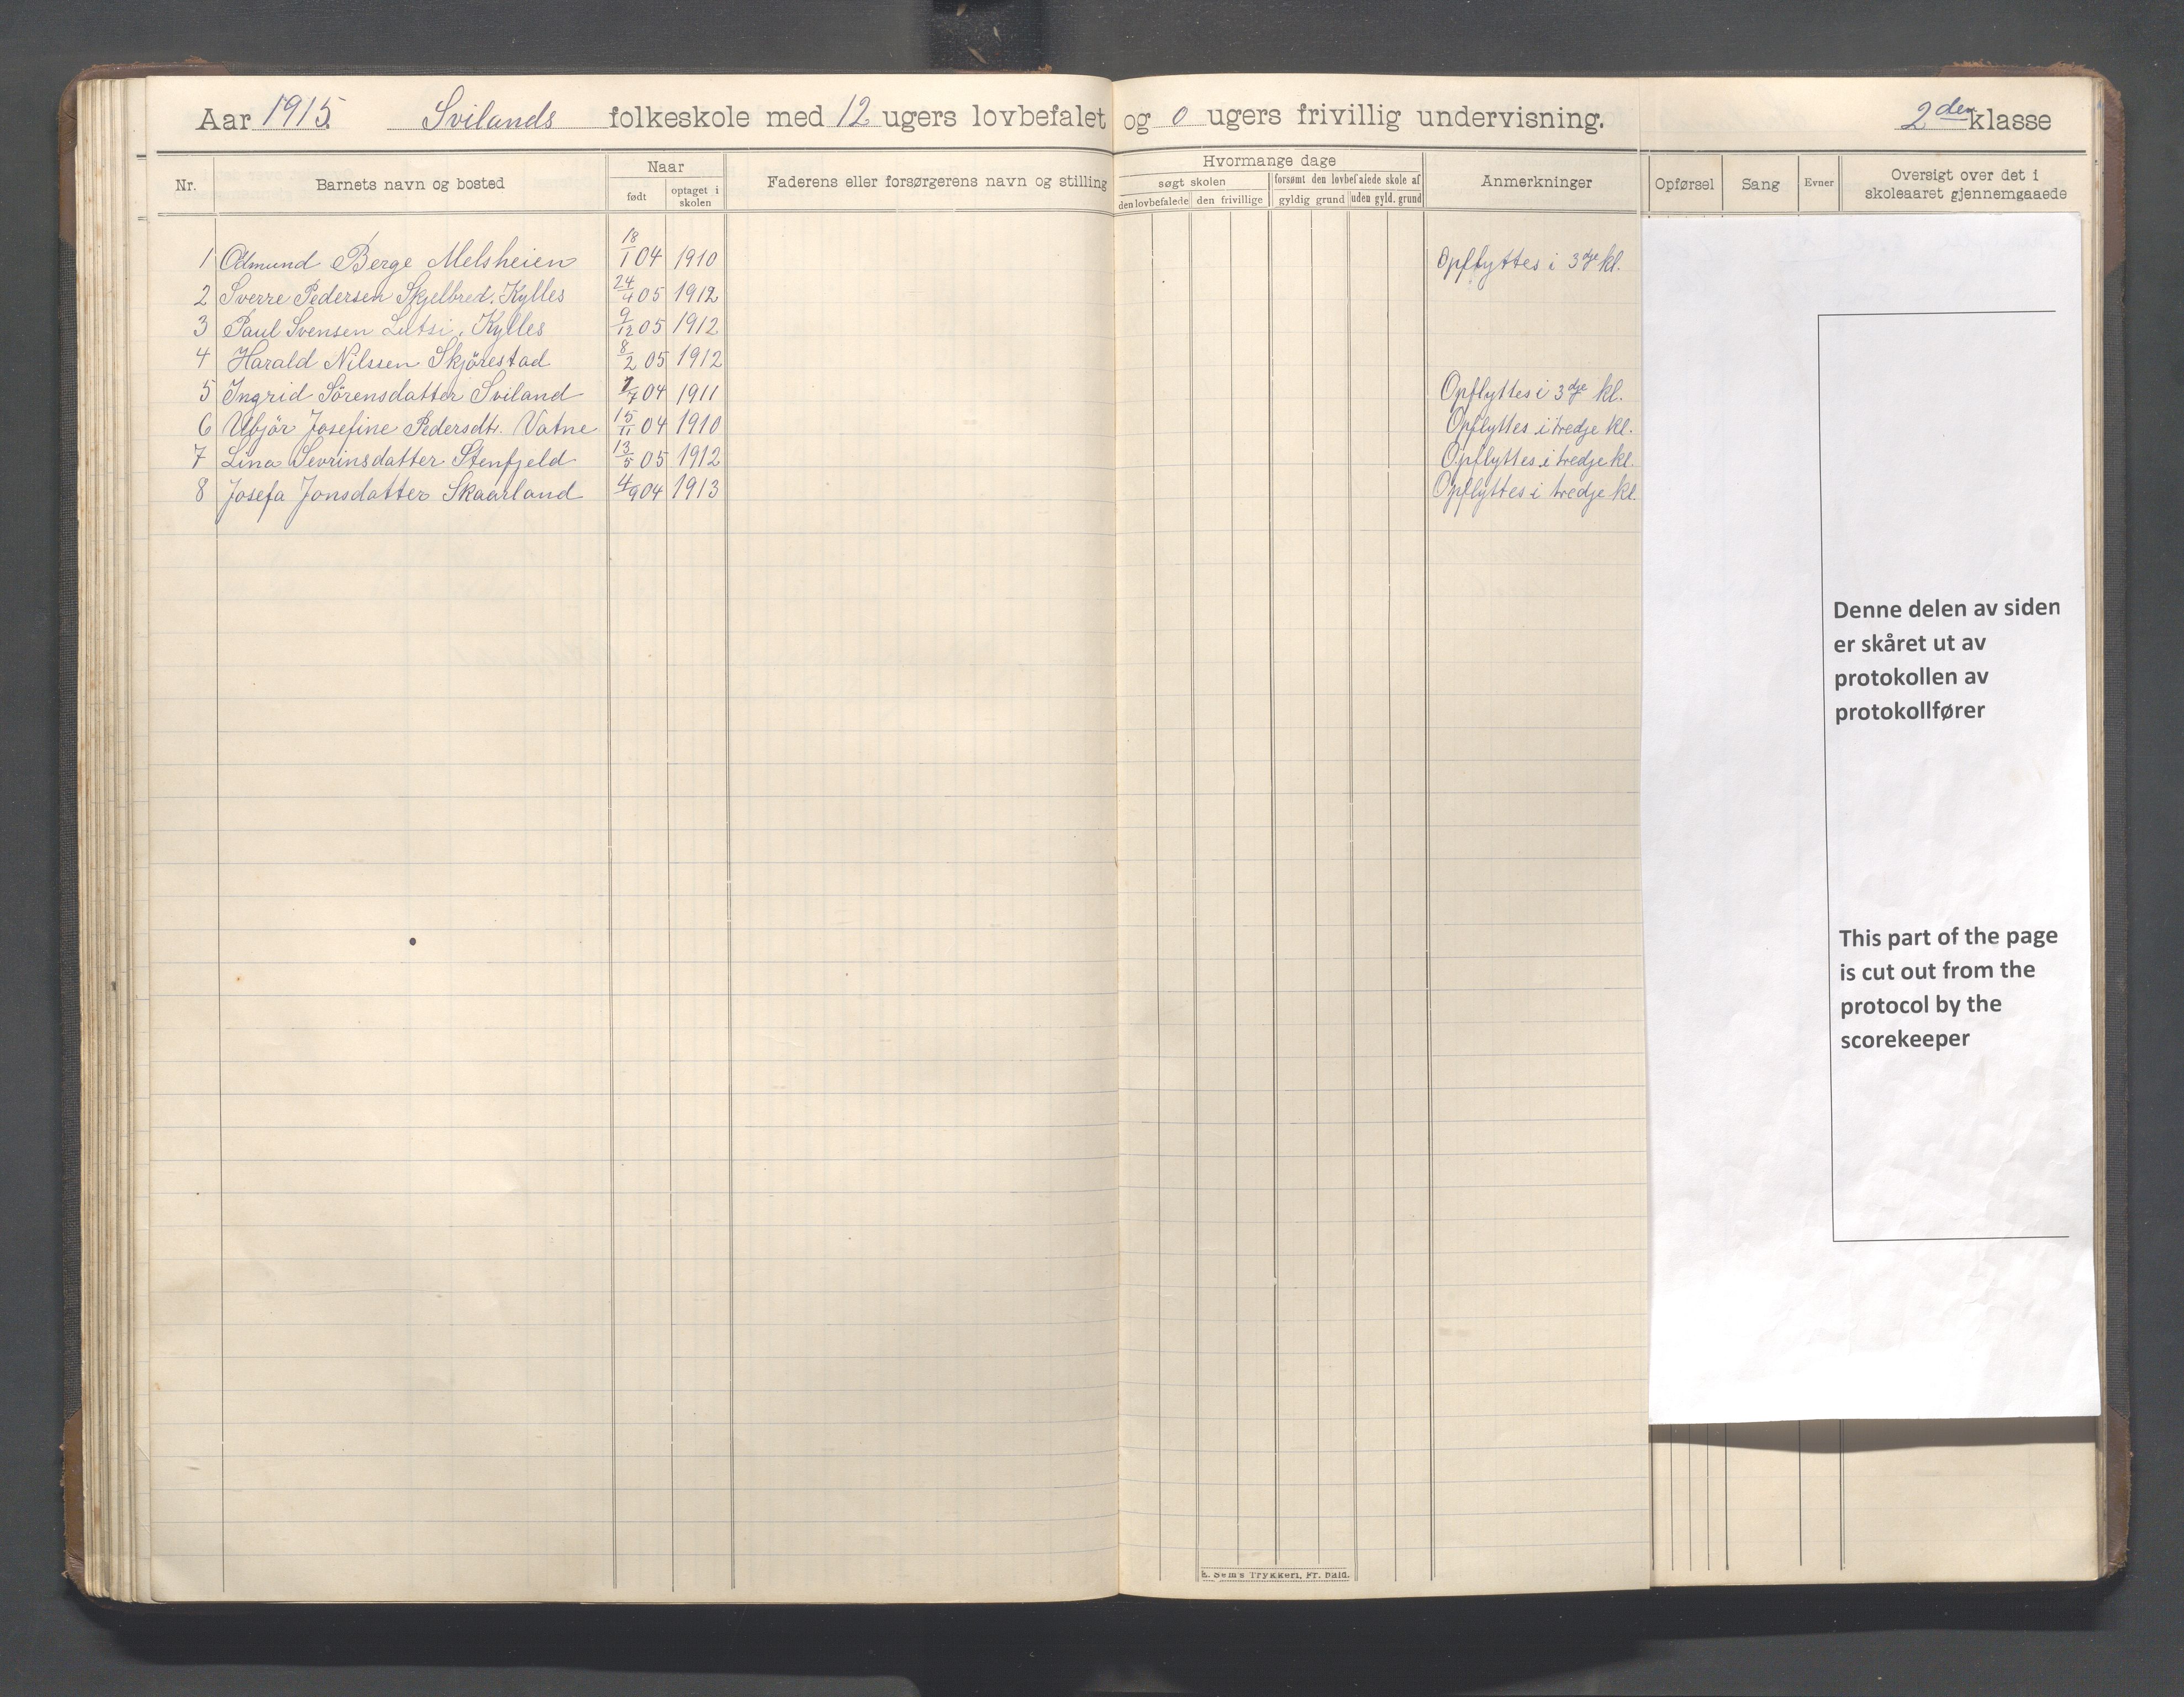 Aar 1915. Svilands folkeskole med 12 ugers lovbefalet og 0 ugers frivillig undervisning. 2den klasse
Nr. Barnets navn og bosted Naar født optaget i skolen Faderens eller forsørgerens navn og stilling Hvormange dage søgt skolen den lovbefalede den frivillige forsømt den lovbefalede skole af gyldig grund uden gyld. grund Anmerkninger Opførsel Sang Evner Oversigt over det i skoleaaret gjennemgaaede
1 Odmund Berge Melsheien 18/1 04 1910 Opflyttes i 3dje kl.
2 Sverre Pedersen Skjelbred. Kylles 24/4 05 1912
3 Paul Svensen Lutsi, Kylles 9/12 05 1912
4 Harald Nilssen Skjörestad 8/2 05 1912
5 Ingrid Sörensdatter Sviland 7/7 04 1911 Opflyttes i 3dje kl.
6 Josefine Pedersdtr. Vatne 15/11 04 1910 Opflyttes i tredje kl.
7 Lina Sevrinsdatter Stenfjeld 13/5 05 1912 Opflyttes i tredje kl.
8 Josefa Jonsdatter Skaarland 4/9 04 1913 Opflyttes i tredje kl.
Denne delen av siden
er skåret ut av
protokollen av
protokollfører
This part of the page
is cut out from the
protocol by the
scorekeeper
E. Sem's Trykkeri, Fr.hald.